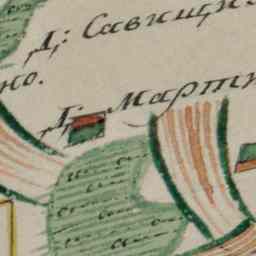 Д: Савищи
но.
Д: Марти